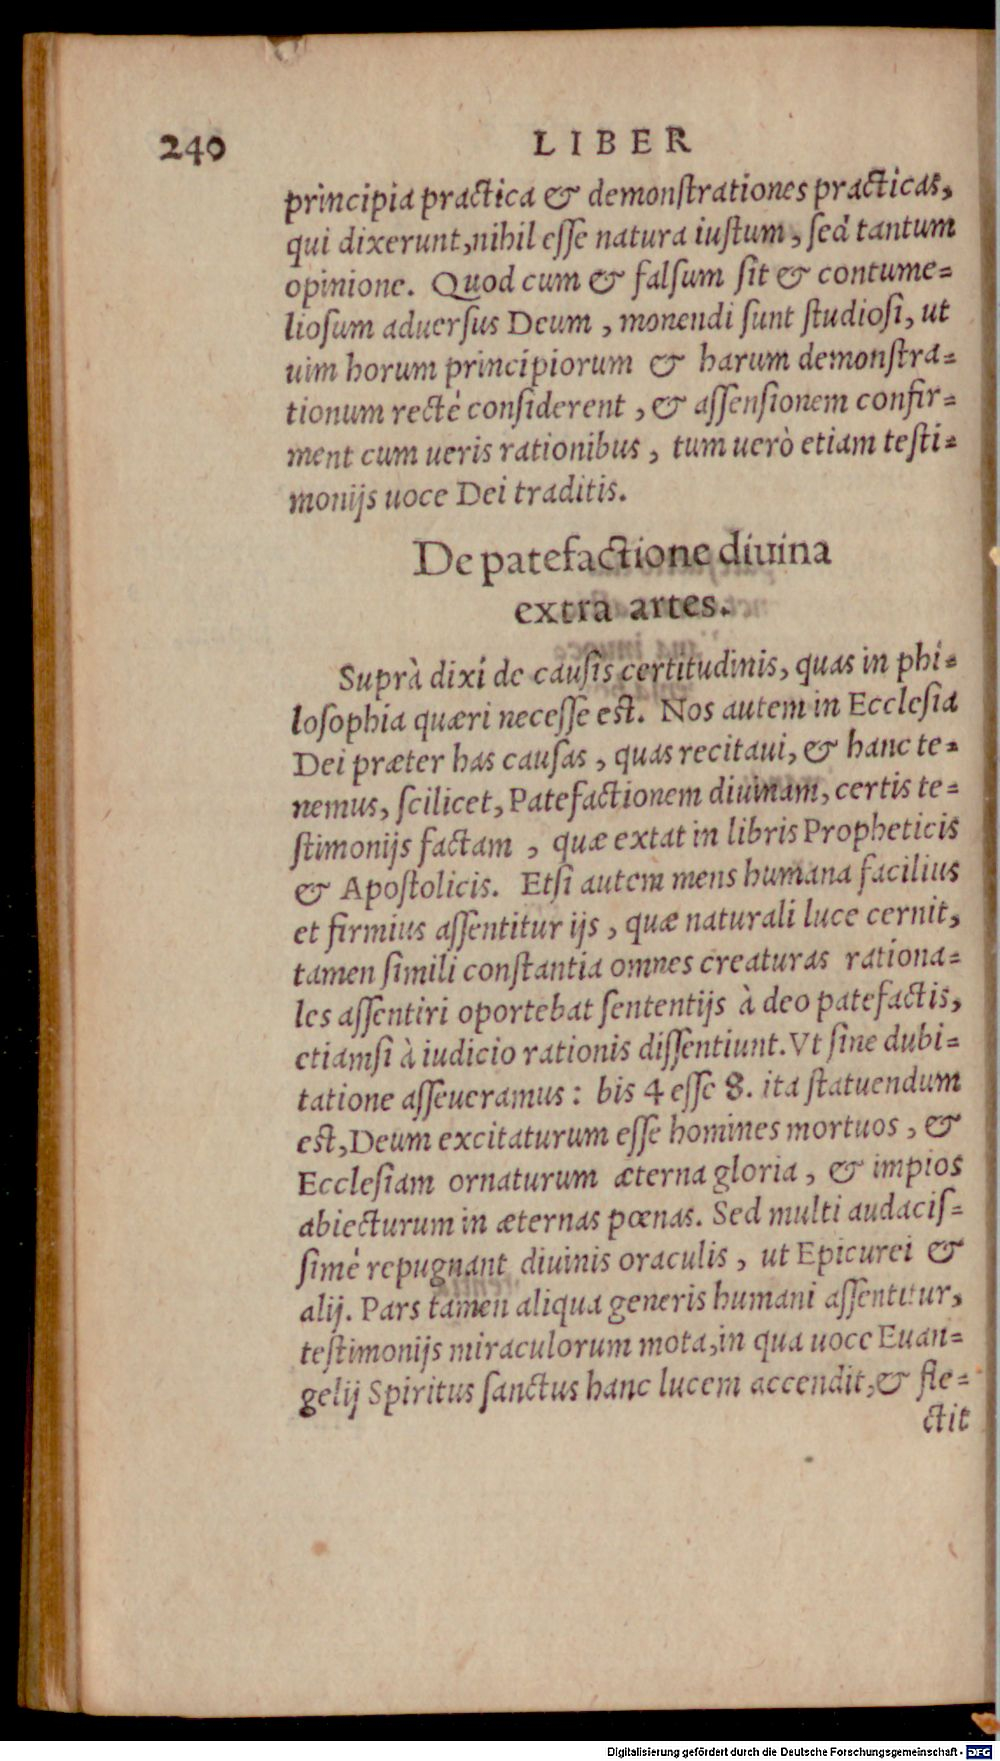 240 LIBER
principia practica & demonſtrationes practicas,
qui dixerunt, nihil eſſe natura iuſtum, ſed tantum
opinione. Quod cum & falſum ſit & contume=
lioſum aduerſus Deum, monendi ſunt ſtudioſi, ut
uim horum principiorum & harum demonſtra=
tionum recté conſiderent, & aſſenſionem confir=
ment cum ueris rationibus, tum uerò etiam teſti=
monijs uoce Dei traditis.
De patefactione diuina
extra artes.
Suprà dixi de cauſis certitudinis, quas in phi=
loſophia quæri neceſſe eſt. Nos autem in Eccleſia
Dei præter has cauſas, quas recitaui, & hanc te=
nemus, ſcilicet, Patefactionem diuinam, certis te=
ſtimonijs factam, quæ extat in libris Propheticis
& Apoſtolicis. Etſi autem mens humana facilius
et firmius aſſentitur ijs, quæ naturali luce cernit,
tamen ſimili conſtantia omnes creaturas rationa=
les aſſentiri oportebat ſententijs à deo patefactis,
etiamſi à iudicio rationis diſſentiunt. Vt ſine dubi=
tatione aſſeueramus: bis 4 eſſe 8. ita ſtatuendum
eſt, Deum excitaturum eſſe homines mortuos, &
Eccleſiam ornaturum æterna gloria, & impios
abiecturum in æternas pœnas. Sed multi audaciſ=
ſimé repugnant diuinis oraculis, ut Epicurei &
alij. Pars tamen aliqua generis humani aſſentitur,
teſtimonijs miraculorum mota, in qua uoce Euan=
gelij Spiritus ſanctus hanc lucem accendit, & fle=
ctit
Digitalisierung gefördert durch die Deutsche Forschungsgemeinschaft - DFG